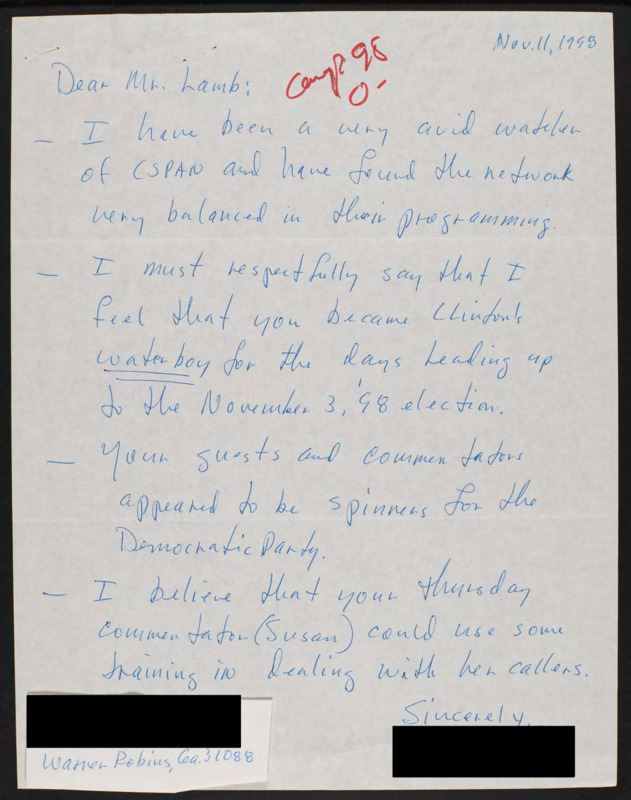 Nov. 11, 1998
Dear Mr. Lamb:
Camp 98
0-
- I have been a very avid watcher
of CSPAN and have found the network
very balanced in their programming.
- I must respectfully say that I
feel that you became Clinton's
waterboy for the days leading up
to the November 3, '98 election.
- Your guests and commentators
appeared to be spinners for the
Democratic Party.
- I believe that your Thursday
commentator (Susan) could use some
training in Dealing with her callers.
Sincerely,
Warner Robins, Ga. 31088